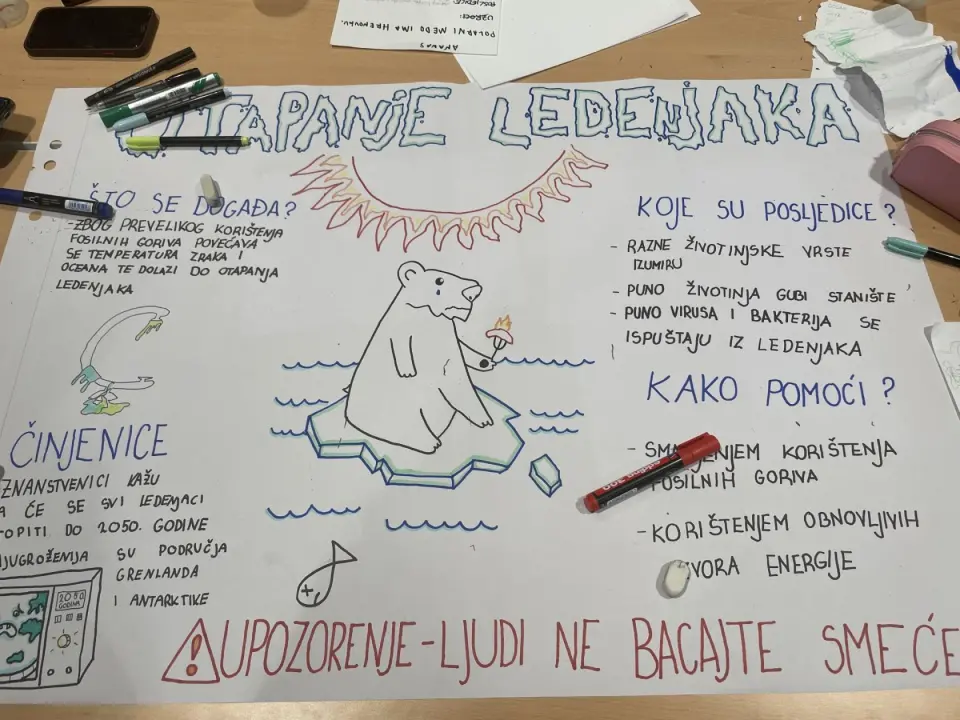 ANANAS
POLARNI MEDO IMA HRENOVKU.
UZROCI:
POSLJEDICE:
OTAPANJE LEDENJAKA
ŠTO SE DOGAĐA?
-ZBOG PREVELIKOG KORIŠTENJA
FOSILNIH GORIVA POVEĆAVA
SE TEMPERATURA ZRAKA I
OCEANA TE DOLAZI DO OTAPANJA
LEDENJAKA
ČINJENICE
ZNANSTVENICI KAŽU
A ĆE SE SVI LEDENJACI
OPITI DO 2050. GODINE
JUGROŽENIJA SU PODRUČJA
GRENLANDA
I ANTARKTIKE
2050
GODINA
KOJE SU POSLJEDICE?
- RAZNE ŽIVOTINJSKE VRSTE
IZUMIRU
- PUNO ŽIVOTINJA GUBI STANIŠTE
- PUNO VIRUSA I BAKTERIJA SE
ISPUŠTAJU IZ LEDENJAKA
KAKO POMOĆI?
- SMANJENJEM KORIŠTENJA
FOSILNIH GORIVA
- KORIŠTENJEM OBNOVLJIVIH
VORA ENERGIJE
edding 300
! UPOZORENJE-LJUDI NE BACAJTE SMEĆE